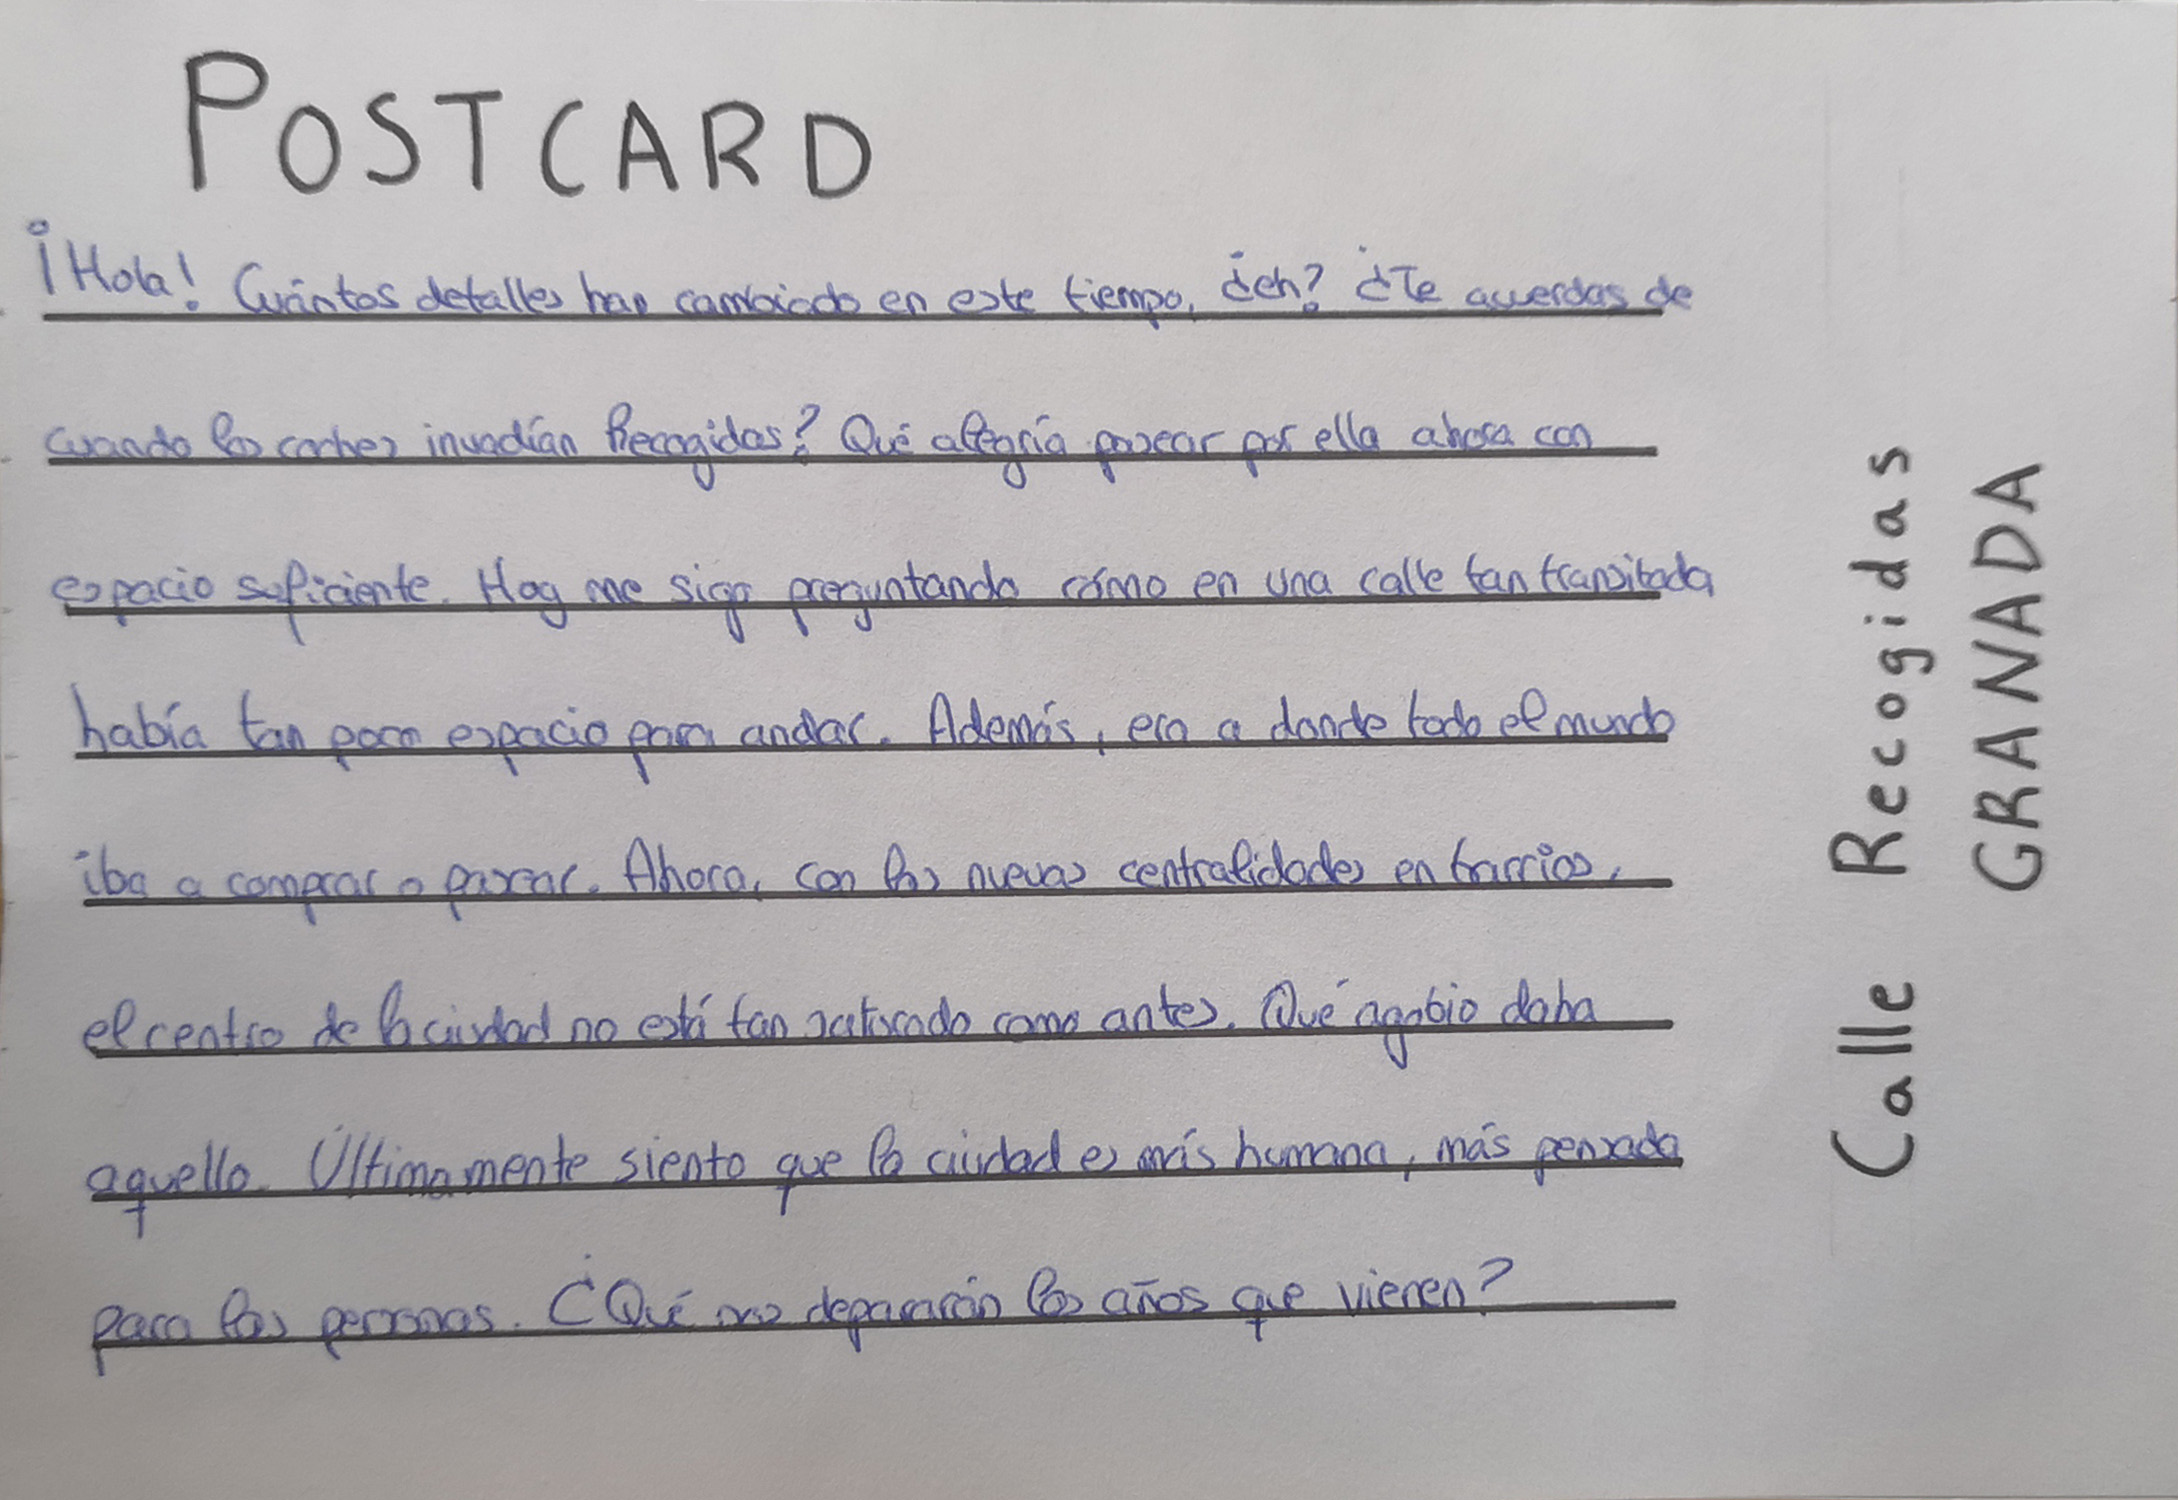 POSTCARD
¡Hola! Cuántos detalles han cambiado en este tiempo, ¿eh? ¿Te acuerdas de
cuando los coches invadían Recogidas? Qué alegría pasear por ella ahora con
espacio suficiente. Hoy me sigo preguntando cómo en una calle tan transitada
había tan poco espacio para andar. Además, era a donde todo el mundo
iba a comprar o pasear. Ahora, con las nuevas centralidades en barrios,
el centro de la ciudad no está tan saturado como antes. Qué agobio daba
aquello. Últimamente siento que la ciudad es más humana, más pensada
para las personas. ¿Qué nos depararán los años que vienen?
Calle Recogidas
GRANADA